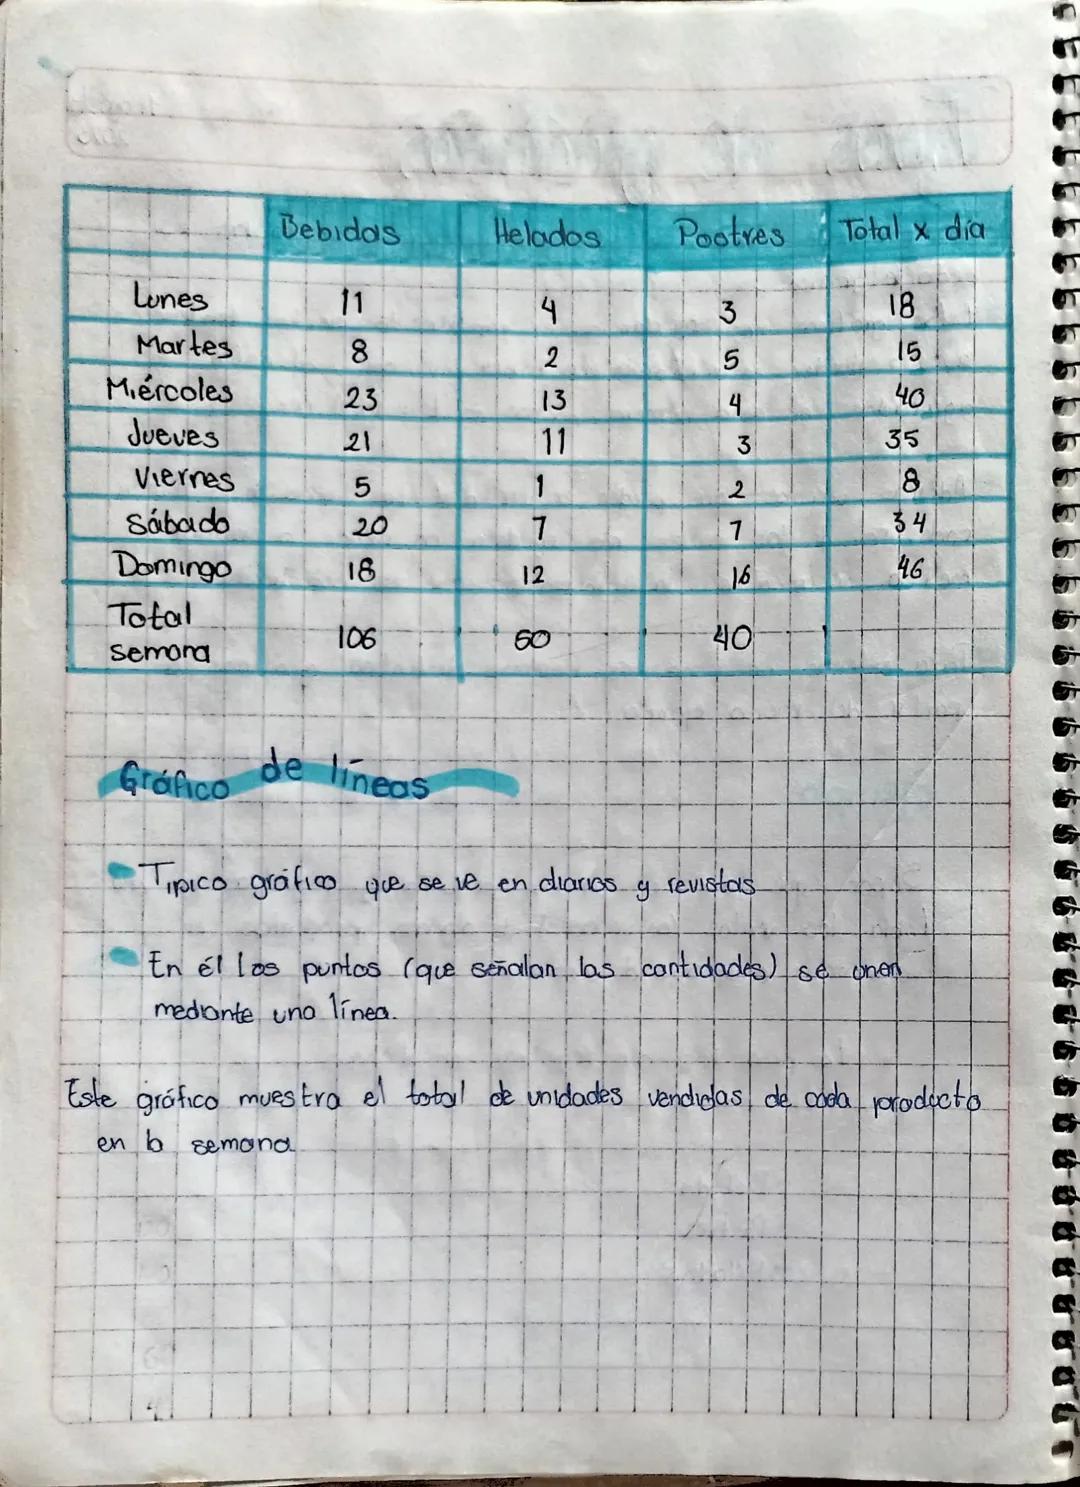 Bebidas Helados Postres Total x día
Lunes 11 4 3 18
Martes 8 2 5 15
Miércoles 23 13 4 40
Jueves 21 11 3 35
Viernes 5 1 2 8
Sábado 20 7 7 34
Domingo 18 12 16 46
Total
semana 106 50 40
Gráfico de líneas
Tipico gráfico que se ve en diarios y revistas
En él los puntos (que señalan las cantidades) se unen
mediante una línea.
Este gráfico muestra el total de unidades vendidas de cada producto
en la semana